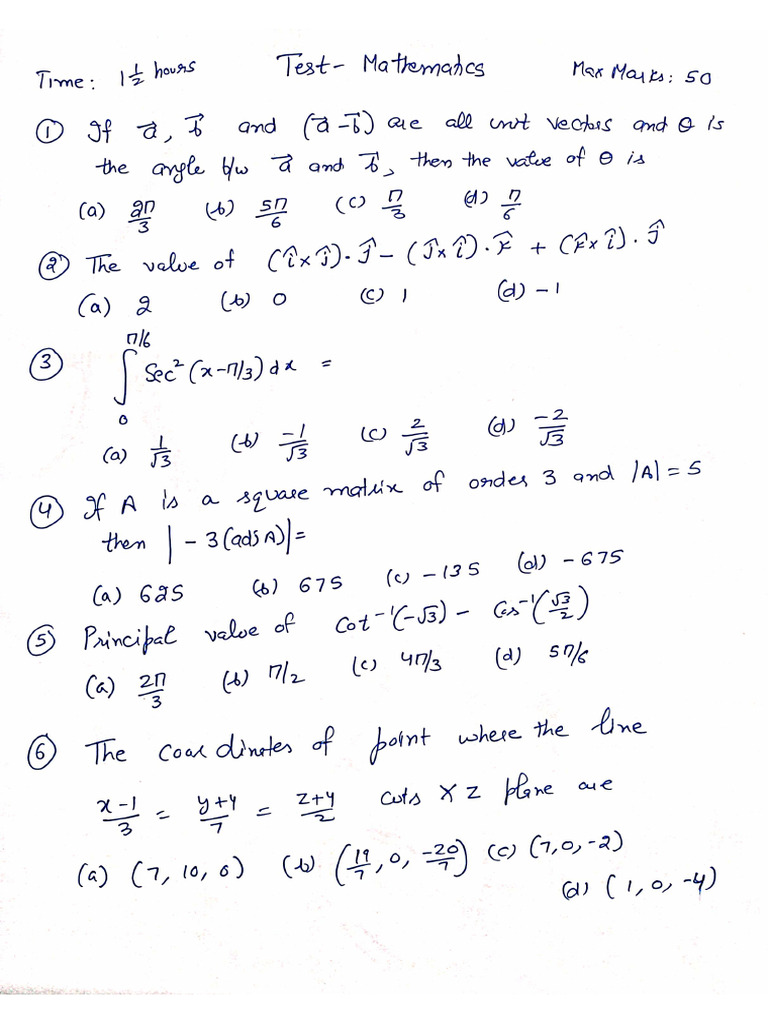 Time: 1 1/2 hours Test- Mathematics Max Marks: 50
① If a⃗, b⃗ and (a⃗ - b⃗) are all unit vectors and θ is
the angle b/w a⃗ and b⃗, then the value of θ is
(a) 2π/3 (b) 5π/6 (c) π/3 (d) π/6
② The value of (î×ĵ)·ĵ - (ĵ×î)·k̂ + (k̂×î)·ĵ
(a) 2 (b) 0 (c) 1 (d) -1
③ ∫₀^(π/6) Sec² (x-π/3) dx =
(a) 1/√3 (b) -1/√3 (c) 2/√3 (d) -2/√3
④ If A is a square matrix of order 3 and |A| = 5
then |-3(adj A)| =
(a) 625 (b) 675 (c) -135 (d) -675
⑤ Principal value of Cot⁻¹(-√3) - Cos⁻¹(√3/2)
(a) 2π/3 (b) π/2 (c) 4π/3 (d) 5π/6
⑥ The coordinates of point where the line
x-1/3 = y+4/7 = z+4/2 cuts XZ plane are
(a) (7, 10, 0) (b) (19/7, 0, -20/7) (c) (7, 0, -2)
(d) (1, 0, -4)